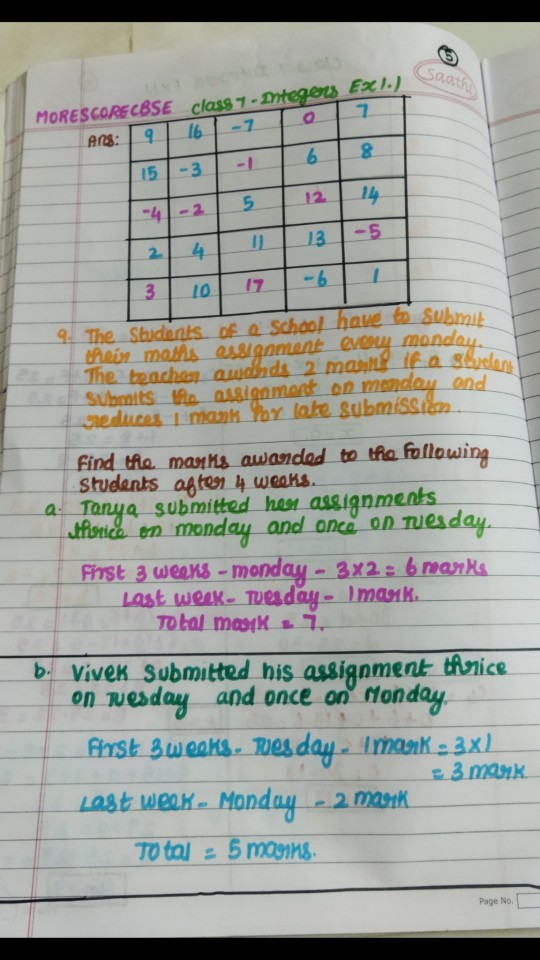 5
Saathi
MORESCORECBSE Class 7 - Integers Ex 1.1
Ans: 9 16 -7 0 7
15 -3 -1 6 8
-4 -2 5 12 14
2 4 11 13 -5
3 10 17 -6 1
9. The Students of a School have to submit
their maths assignment every monday.
The teacher awards 2 marks if a student
submits the assignment on monday and
reduces 1 mark for late submission.
Find the marks awarded to the following
students after 4 weeks.
a. Tanya submitted her assignments
thrice on monday and once on Tuesday.
First 3 weeks - monday - 3x2 = 6 marks
Last week - Tuesday - 1 mark.
Total mark = 7.
b. Vivek submitted his assignment thrice
on Tuesday and once on Monday.
First 3 weeks - Tuesday - 1 mark = 3x1
= 3 mark
Last week - Monday - 2 mark
Total = 5 marks.
Page No.